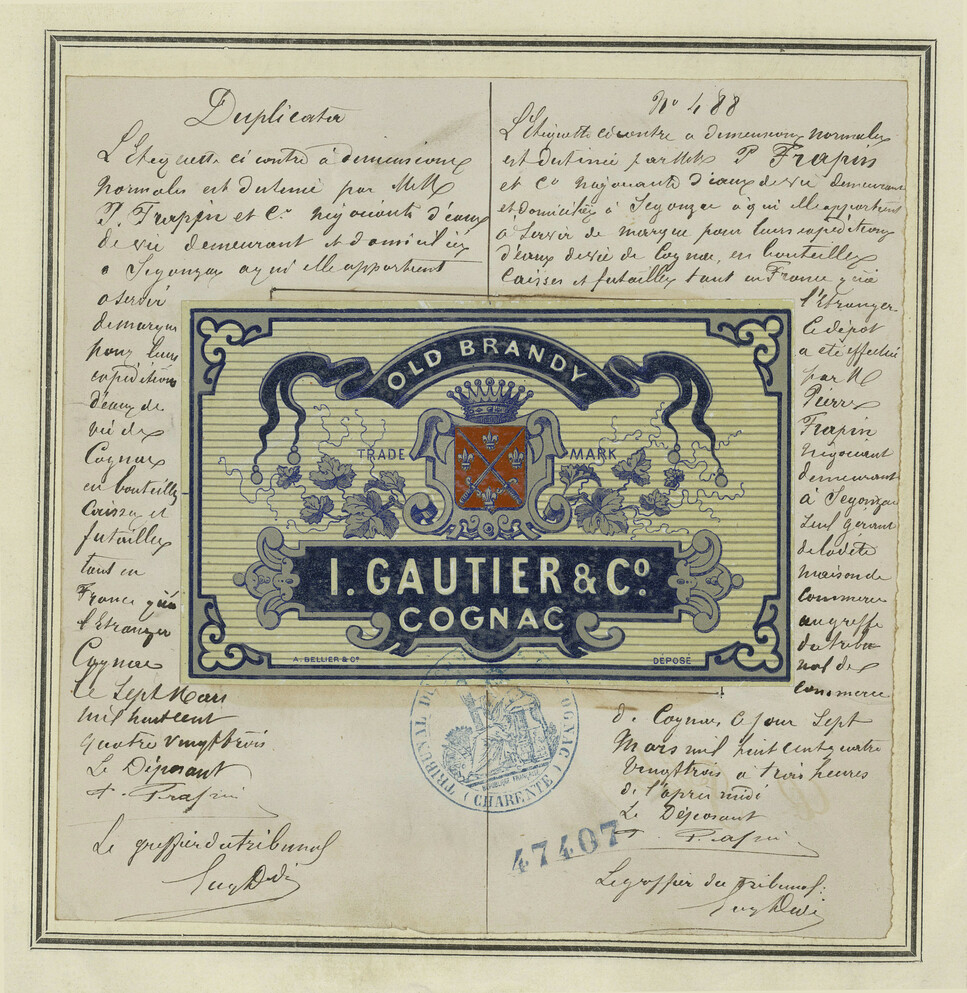 Duplicata
L'Etiquette ci contre à dimensions
normales est destinée par MM
P. Frapin et Cie négociants d'eaux
de vie demeurant et domiciliés
a Segonzac a qui elle appartient
a servir
de marque
pour leurs
expéditions
d'eaux de
vie de
Cognac
en bouteilles
Caisses et
futailles
tant en
France qu'a
l'Etranger
Cognac
le Sept Mars
mil huit cent
quatre vingt trois
Le Déposant
P. Frapin
Le greffier du tribunal
No 488
L'Etiquette ci contre a dimensions normales
est destinée par MM P Frapin
et Co négociants d'eaux de vie demeurant
et domiciliés à Segonzac à qui elle appartient
a servir de marque pour leurs expéditions
d'eaux de vie de Cognac, en bouteilles
Caisses et futailles tant en France qu'à
l'Etranger
le dépôt
a été effectué
par M
Pierre
Frapin
négociant
demeurant
à Segonzac
seul gérant
de la dite
maison de
commerce
au greffe
du tribu
nal de
commerce
de Cognac ce jour Sept
Mars mil huit cent quatre
vingt trois à trois heures
de l'après midi
Le Déposant
P. Frapin
Le greffier du tribunal:
OLD BRANDY
TRADE MARK
I. GAUTIER & Co.
COGNAC
A. BELLIER & Co
DÉPOSÉ
TRIBUNAL DE COGNAC (CHARENTE)
RÉPUBLIQUE FRANÇAISE
47407